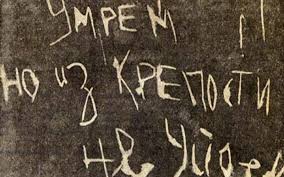 Умрем !!
но из крепости
не уйдем